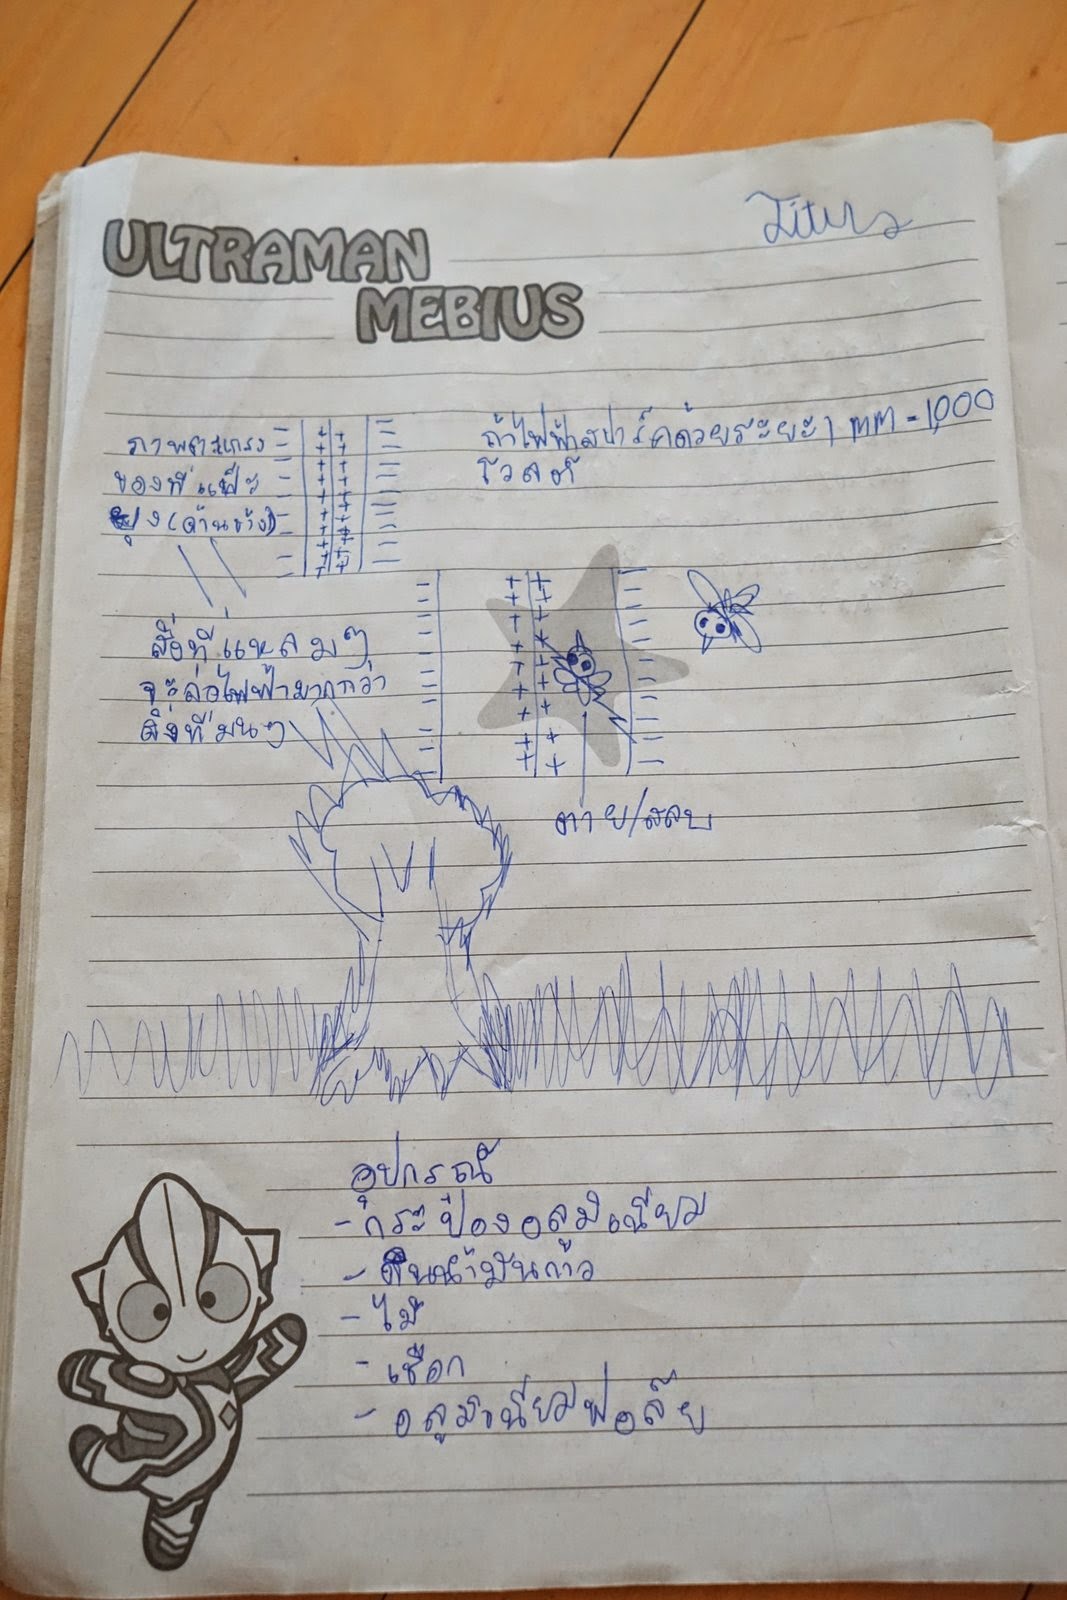 ULTRAMAN
MEBIUS
Titus
ภาพตะแกรง
ของที่แปะ
ยุง(ด้านข้าง)
ถ้าไฟฟ้าสปาร์คด้วยระยะ 1 mm = 1,000
โวลต์
สิ่งที่แหลมๆ
จะล่อไฟฟ้ามากกว่า
สิ่งที่มนๆ
ตาย/สลบ
อุปกรณ์
- กระป๋องอลูมิเนียม
- ดินน้ำมันกาว
- ไม้
- เชือก
- อลูมิเนียมฟอล์ย